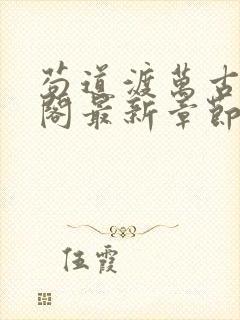 苟道渡萬古
閣最新章節
伍霞